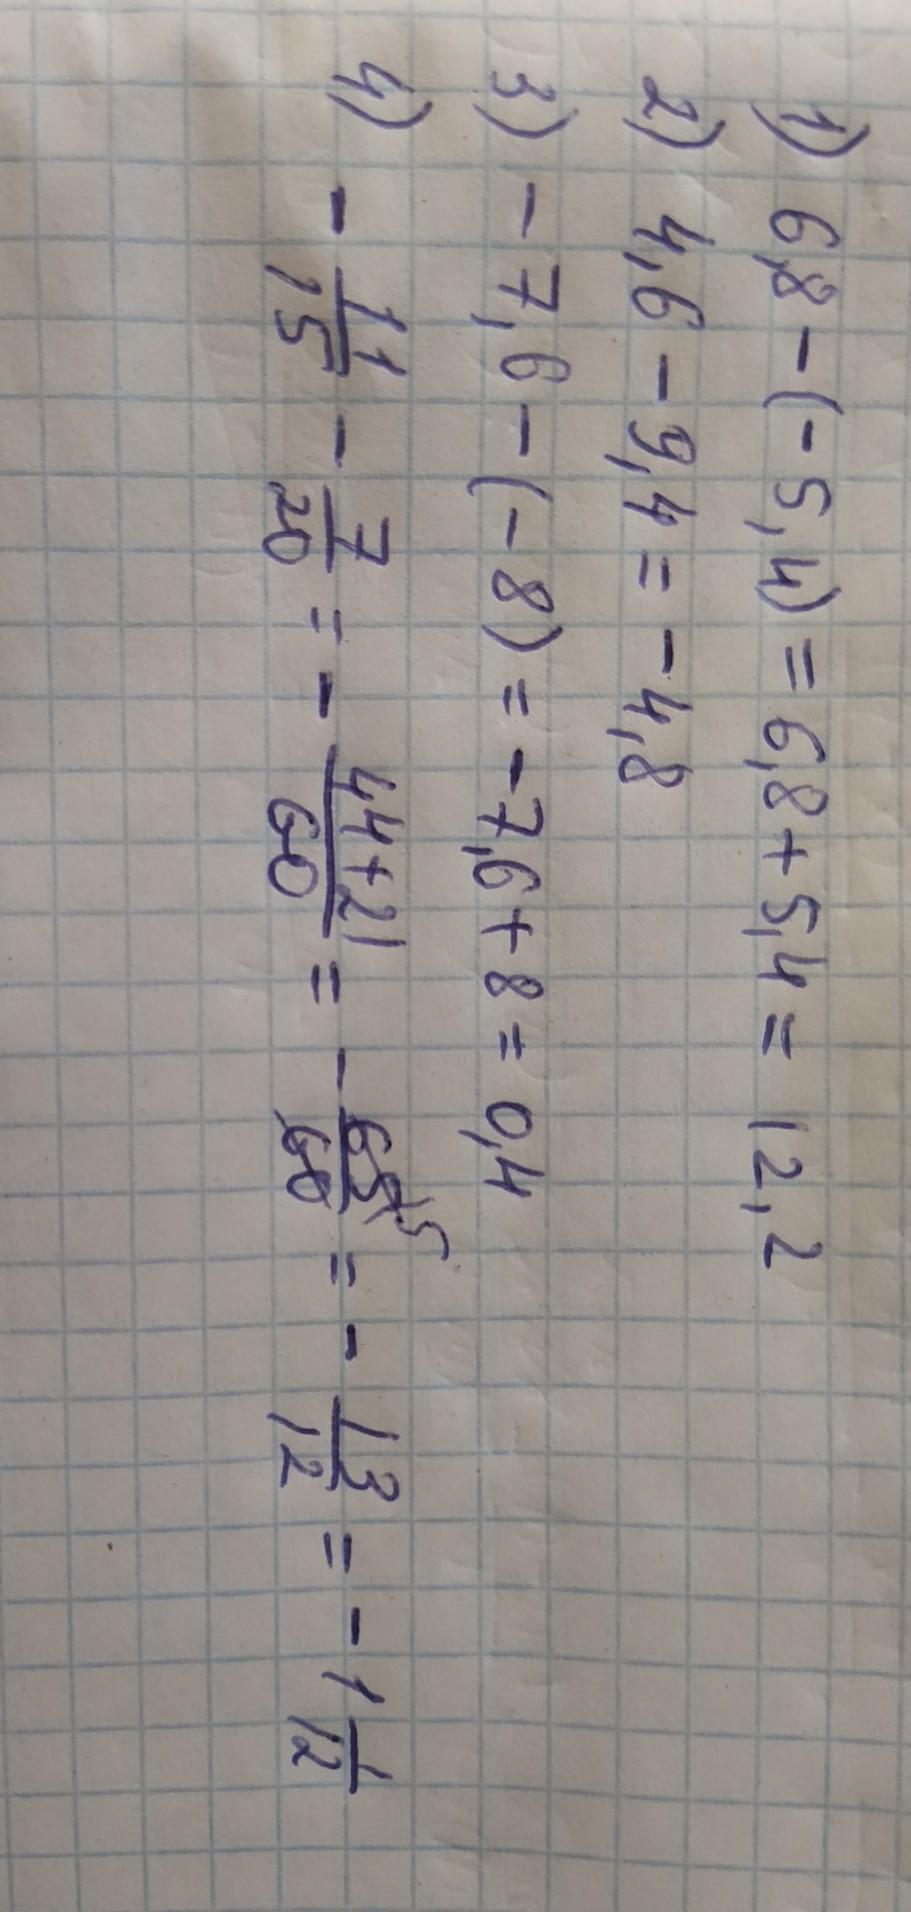 1) 6,8 - (-5,4) = 6,8 + 5,4 = 12,2
2) 4,6 - 9,4 = -4,8
3) -7,6 - (-8) = -7,6 + 8 = 0,4
4) - 11/15 - 7/20 = - (44+21)/60 = - 65/60 \5 = - 13/12 = -1 1/12